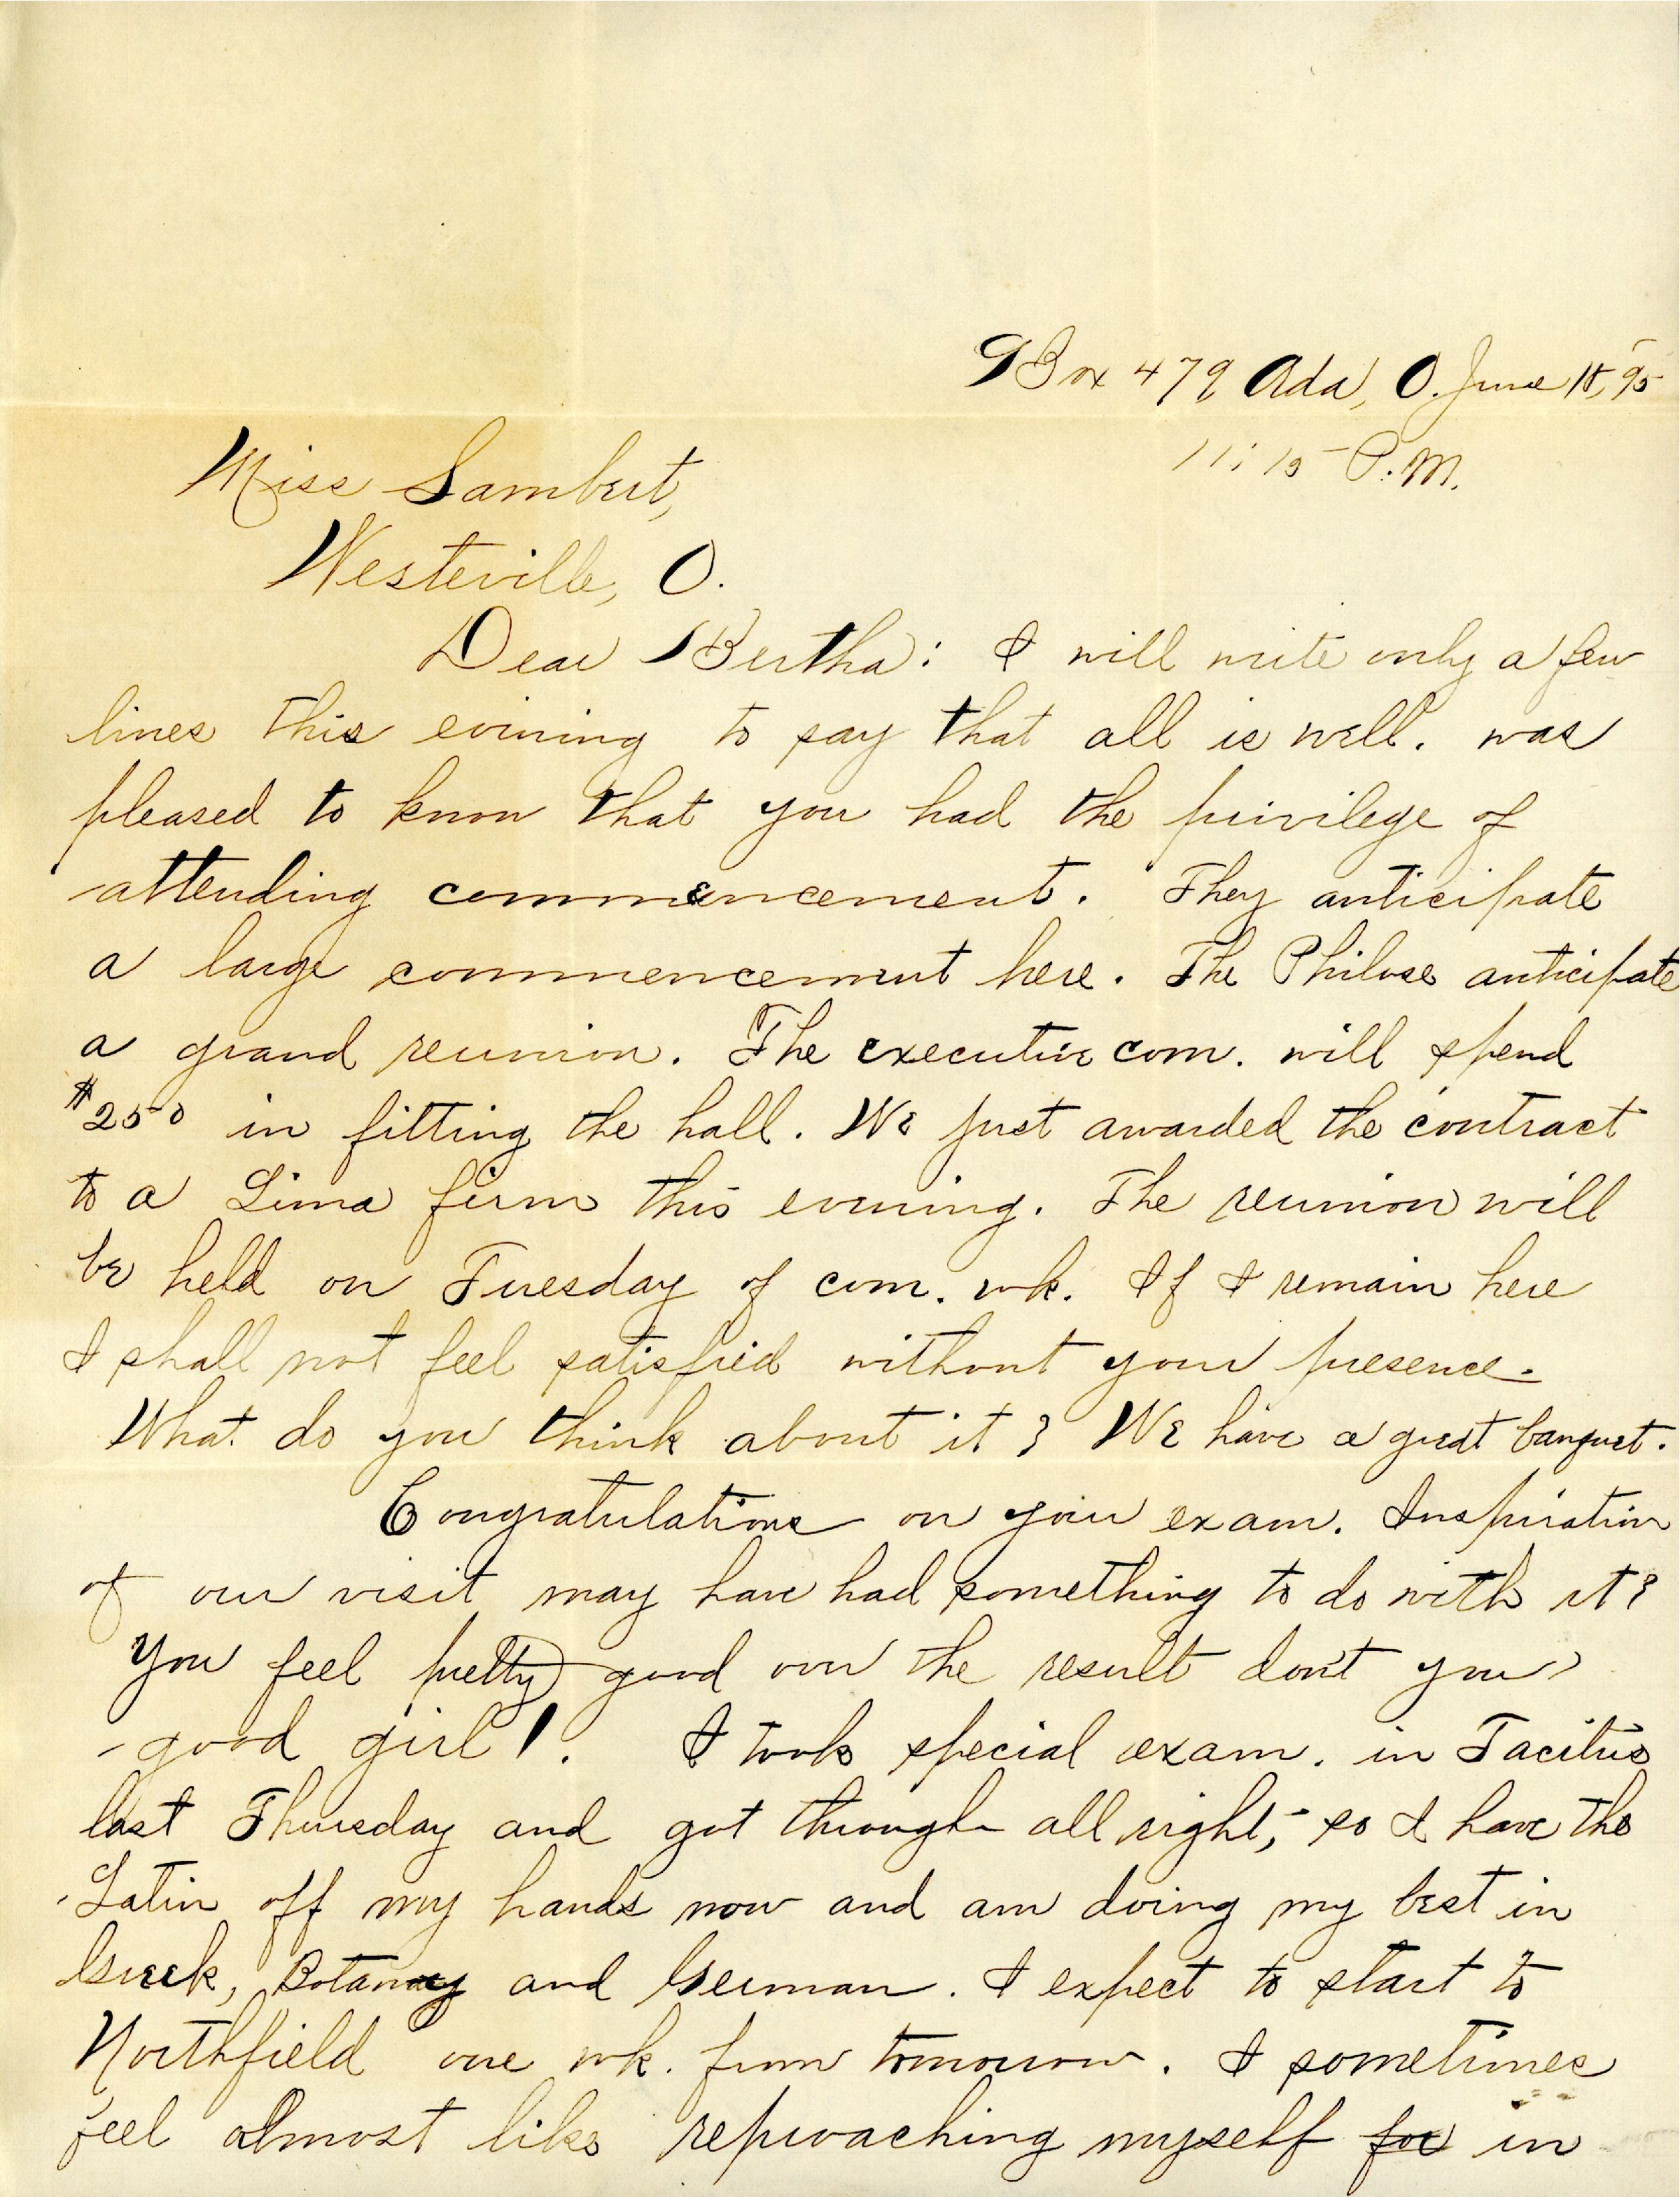 Box 479 Ada, O. June 18, 95
11:15 P.M.
Miss Lambert,
Westeville, O.
Dear Bertha: I will write only a few
lines this evening to say that all is well. was
pleased to know that you had the privilege of
attending commencement. They anticipate
a large commencement here. The Philos anticipate
a grand reunion. The executive com. will spend
$250 in fitting the hall. We just awarded the contract
to a Lima firm this evening. The reunion will
be held on Tuesday of com. wk. If I remain here
I shall not feel satisfied without your presence.
What do you think about it? We have a great banquet.
Congratulations on your exam. Inspiration
of our visit may have had something to do with it?
You feel pretty good over the result don't you?
good girl!. I took special exam. in Tacitus
last Thursday and got through all right, - so I have the
Latin off my hands now and am doing my best in
Greek, Botany and German. I expect to start to
Northfield one wk. from tomorrow. I sometimes
feel almost like reproaching myself for in